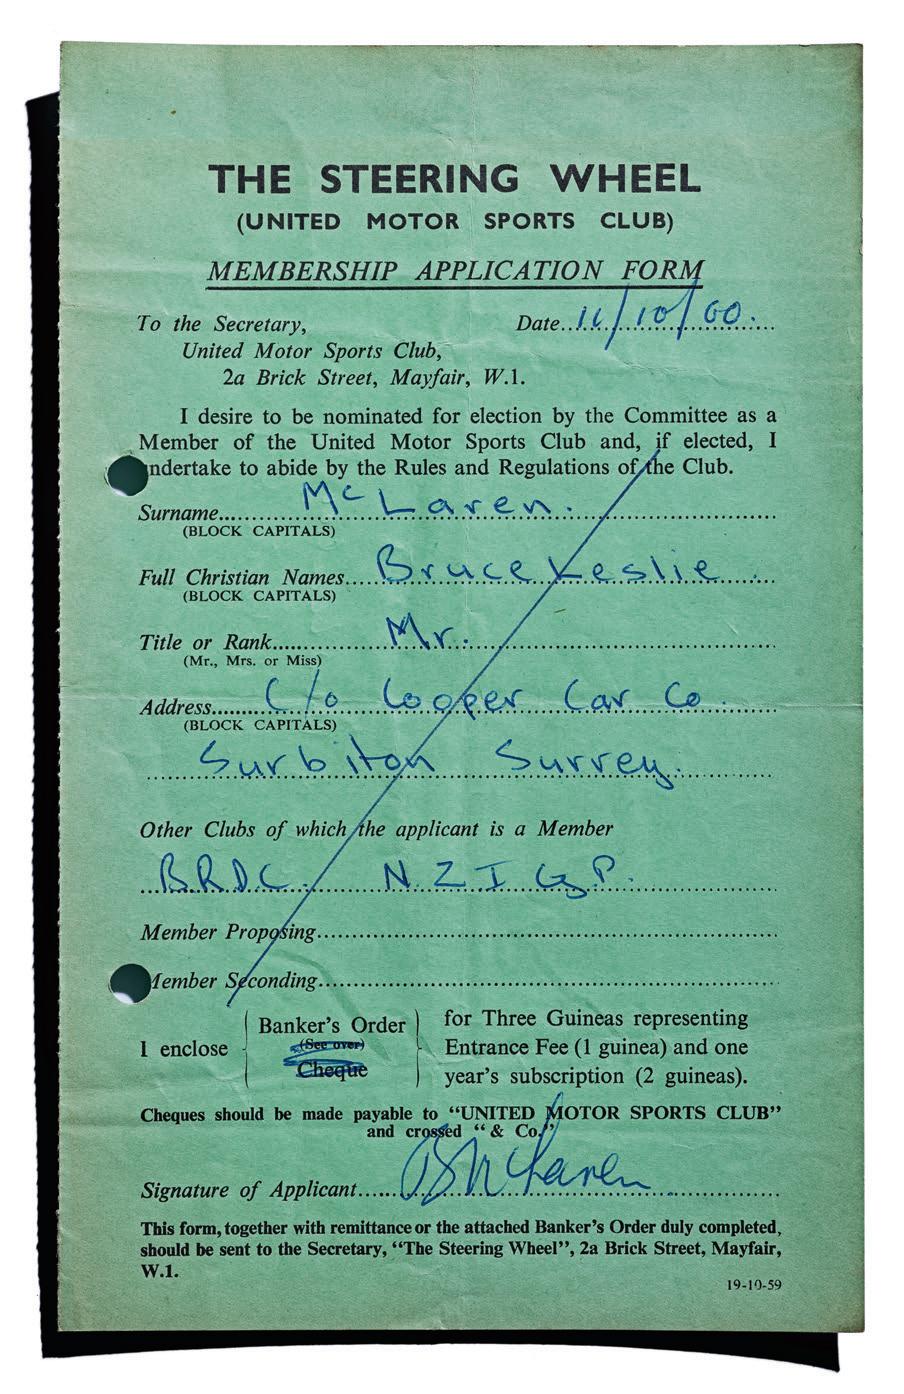 THE STEERING WHEEL
(UNITED MOTOR SPORTS CLUB)
MEMBERSHIP APPLICATION FORM
To the Secretary, Date..11/10/60.
United Motor Sports Club,
2a Brick Street, Mayfair, W.1.
I desire to be nominated for election by the Committee as a
Member of the United Motor Sports Club and, if elected, I
undertake to abide by the Rules and Regulations of the Club.
Surname McLaren.
(BLOCK CAPITALS)
Full Christian Names Bruce Leslie
(BLOCK CAPITALS)
Title or Rank Mr.
(Mr., Mrs. or Miss)
Address C/o Cooper Car Co.
(BLOCK CAPITALS)
Surbiton Surrey.
Other Clubs of which the applicant is a Member
B.R.D.C. N.Z.I.G.P.
Member Proposing
Member Seconding
I enclose Banker's Order (See over) Cheque for Three Guineas representing
Entrance Fee (1 guinea) and one
year's subscription (2 guineas).
Cheques should be made payable to "UNITED MOTOR SPORTS CLUB"
and crossed "& Co."
Signature of Applicant B McLaren
This form, together with remittance or the attached Banker's Order duly completed,
should be sent to the Secretary, "The Steering Wheel", 2a Brick Street, Mayfair,
W.1.
19-10-59